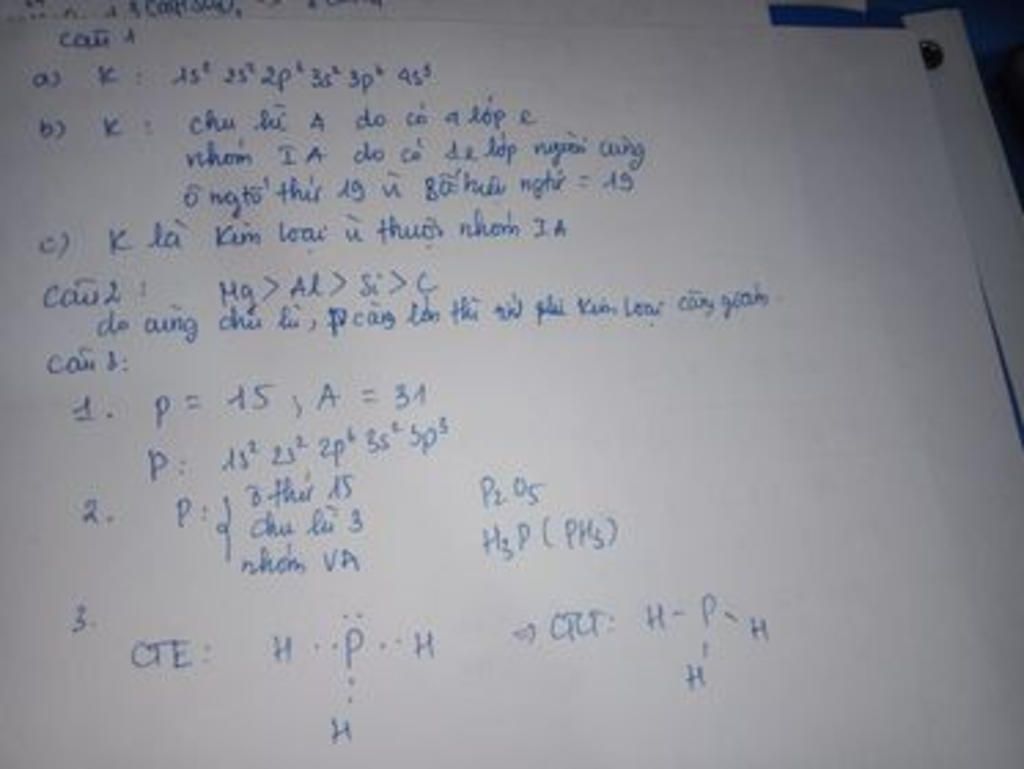 Câu 1
a) K : 1s² 2s² 2p⁶ 3s² 3p⁶ 4s¹
b) K : chu kì 4 do có 4 lớp e
nhóm IA do có 1e lớp ngoài cùng
ô ngtố thứ 19 vì số hiệu ngtử = 19
c) K là Kim loại vì thuộc nhóm IA
Câu 2 : Mg > Al > Si > C
do cùng chu kì, p càng lớn thì Kim loại càng giảm
Câu 3:
1. p = 15 , A = 31
P: 1s² 2s² 2p⁶ 3s² 3p³
2. P: { ô thứ 15 P₂O₅
chu kì 3 H₃P (PH₃)
nhóm VA
3.
CTE : H ·· P̈ ·· H ⇒ CTCT: H - P - H
: |
H H